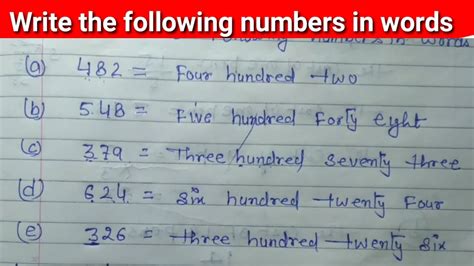 Write the following numbers in words
following numbers in words
(a) 482 = Four hundred two
(b) 548 = Five hundred Forty eight
(c) 379 = Three hundred seventy three
(d) 624 = six hundred twenty Four
(e) 326 = three hundred twenty six